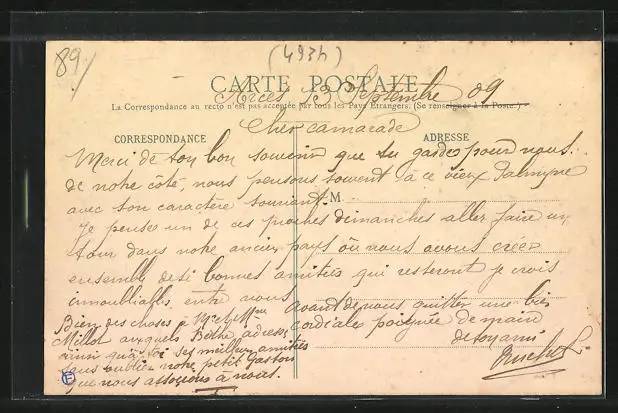 89/
(493h)
CARTE POSTALE
Arces 13 Septembre 09
La Correspondance au recto n'est pas acceptée par tous les Pays Étrangers. (Se renseigner à la Poste.)
Cher camarade
CORRESPONDANCE
ADRESSE
Merci de ton bon souvenir que tu gardes pour nous.
de notre côté, nous pensons souvent à ce vieux Palmyre
M
avec son caractère souriant.
Je penses un de ces proches dimanches aller faire un
tour dans notre ancien pays où nous avons créer
ensemble de si bonnes amitiés qui resteront je crois
innoubliables entre nous
Avant de nous quitter une bien
cordiales poignée de main
de ton ami
Bien des choses à Mr et Mme
Millot auxquels Berthe adresse,
ainsi qu'à toi ses meilleurs amitiés
sans oublier notre petit Gaston
que nous associons à nous.